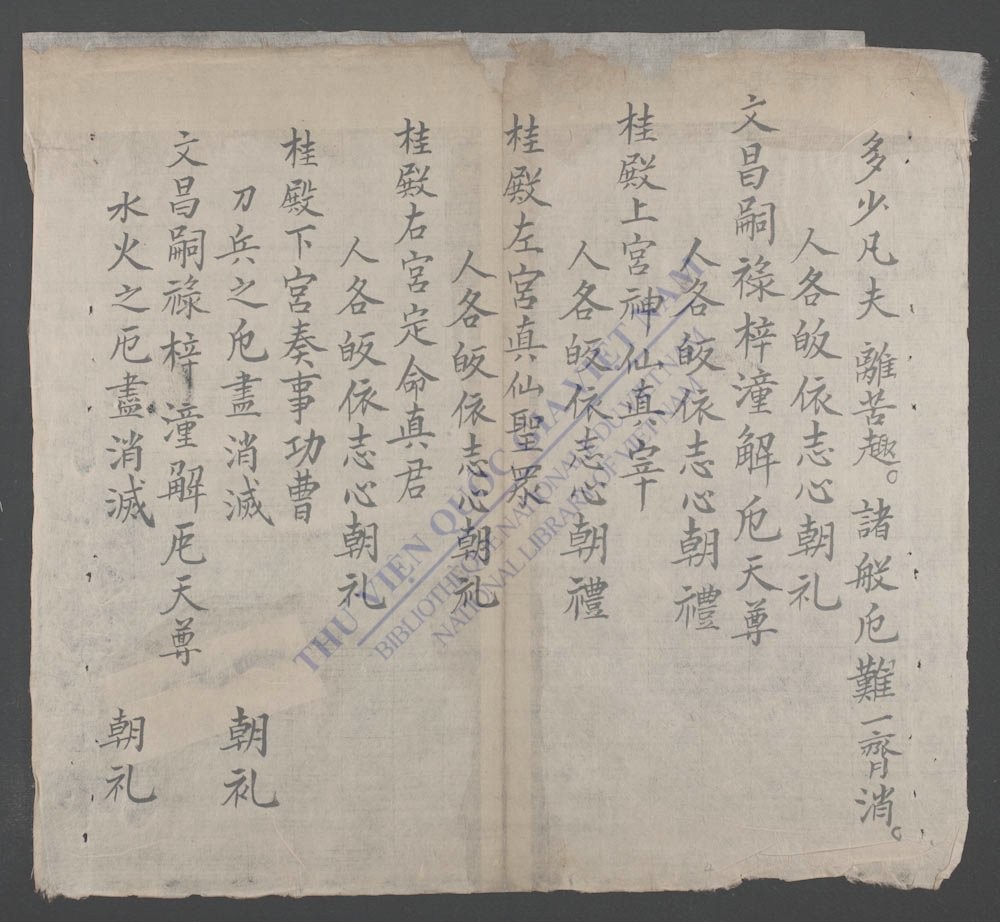 多少凡夫離苦趣。諸般厄難一齊消。
人各皈依志心朝礼
文昌嗣祿梓潼解厄天尊
人各皈依志心朝禮
桂殿上宮神仙真宰
人各皈依志心朝禮
桂殿左宮真仙聖眾
人各皈依志心朝礼
桂殿右宮定命真君
人各皈依志心朝礼
桂殿下宮奏事功曹
刀兵之厄盡消滅 朝礼
文昌嗣祿梓潼解厄天尊
水火之厄盡消滅 朝礼
THƯ VIỆN QUỐC GIA VIỆT NAM
BIBLIOTHÈQUE NATIONALE DU VIETNAM
NATIONAL LIBRARY OF VIETNAM